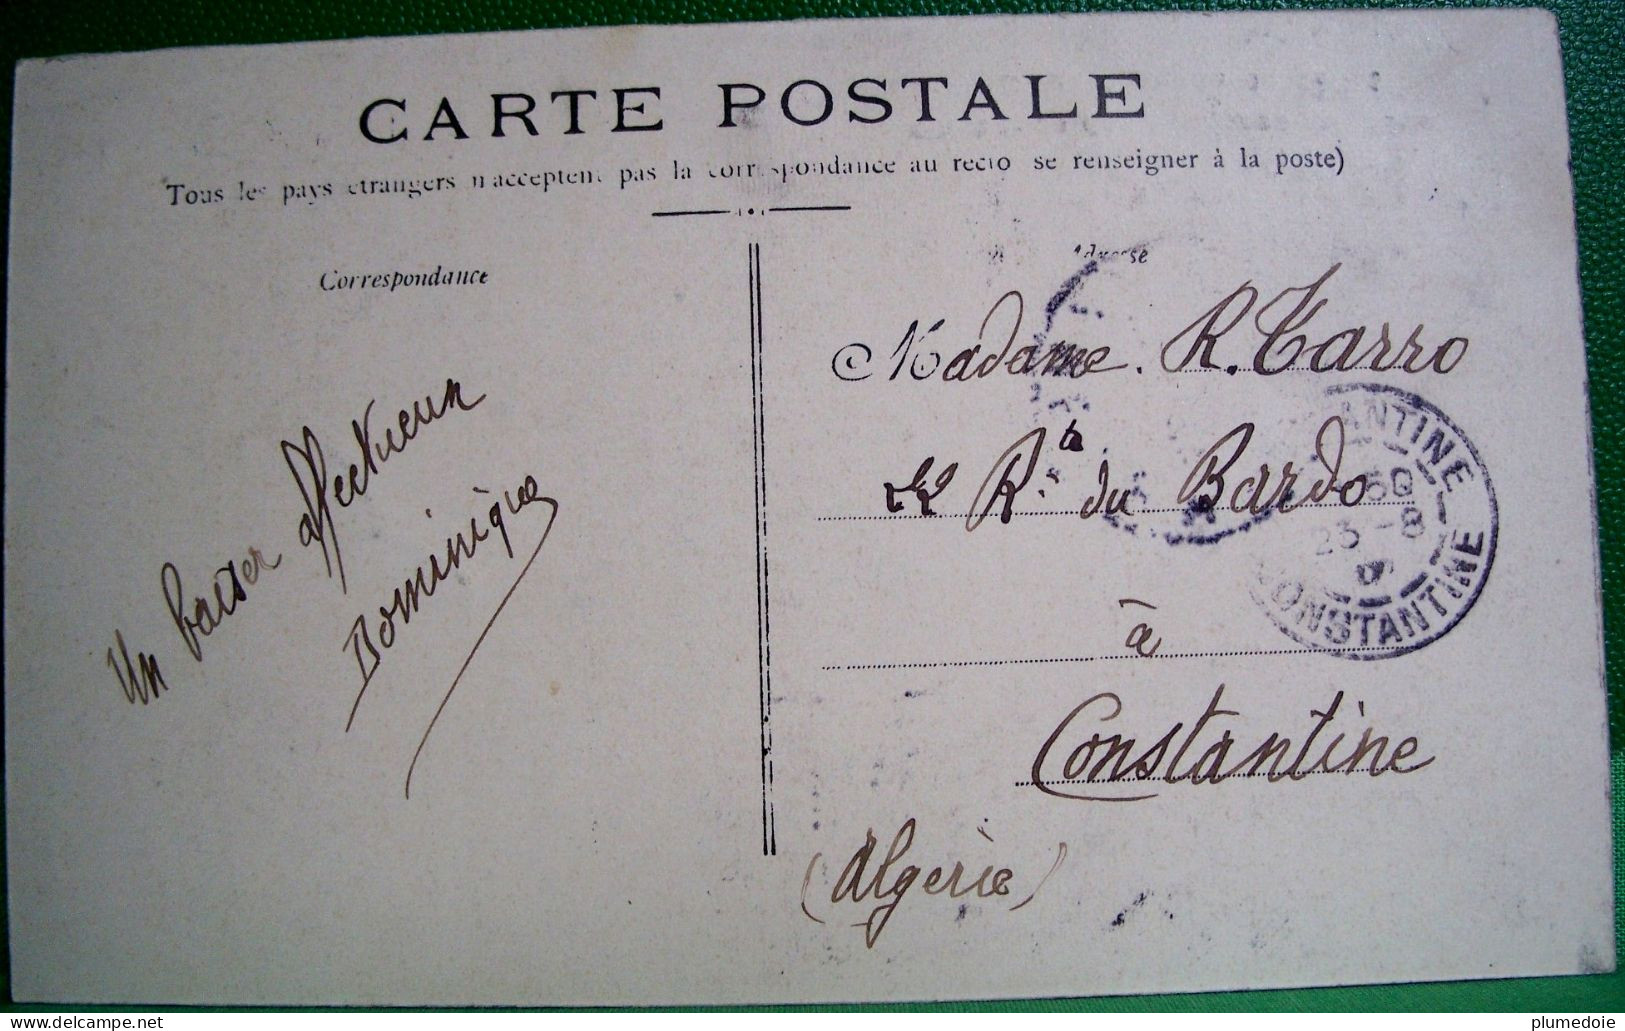 CARTE POSTALE
Tous les pays étrangers n'acceptent pas la correspondance au recto se renseigner à la poste)
Correspondance
Adresse
Un baiser affectueux
Dominique
Madame. R. Tarro
Rte du Bardo
à
Constantine
(Algérie)
CONSTANTINE
23 - 8
CONSTANTINE
plumedoie